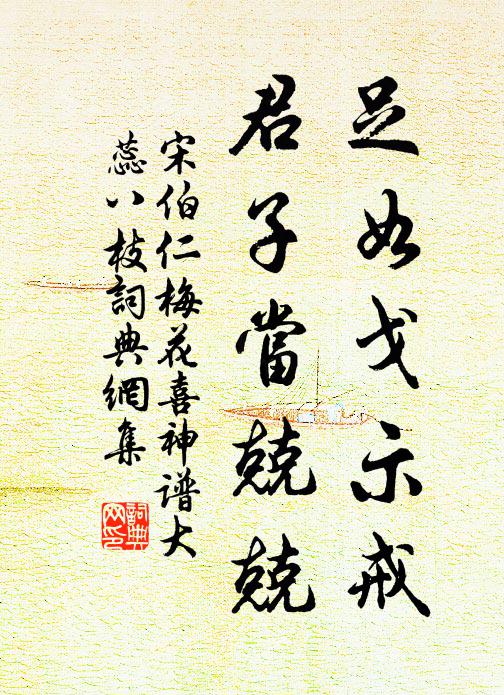 足如戈示戒
君子當兢兢
宋伯仁梅花喜神譜大
蕊八枝詞典網集
詞典网印